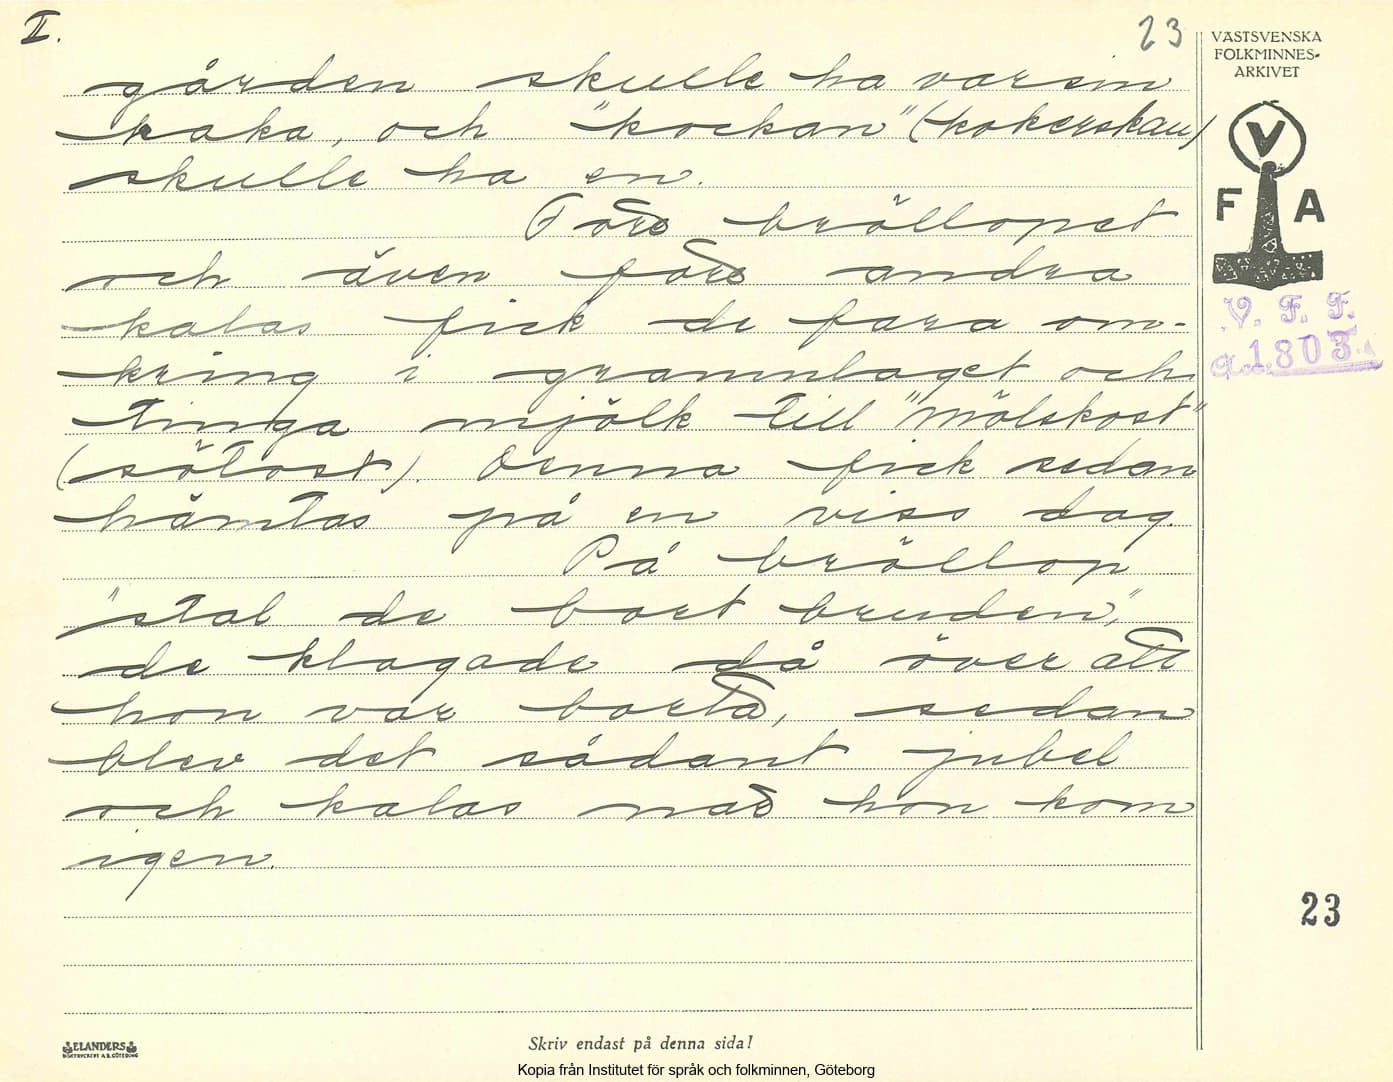 II.
23
VÄSTSVENSKA
FOLKMINNES-
ARKIVET
V
F A
V. F. F.
1803
gården skulle ha varsin
kaka, och "kockan" (kokerskan)
skulle ha en.
Före bröllopet
och även före andra
kalas fick de fara om-
kring i grannlaget och
tinga mjölk till "mölskost"
(sötost). Denna fick sedan
hämtas på en viss dag.
På bröllop
"stal de bort bruden",
de klagade då över att
hon var borta, sedan
blev det sådant jubel
och kalas när hon kom
igen.
23
ELANDERS
BOKTRYCKERI A.B. GÖTEBORG
Skriv endast på denna sida!
Kopia från Institutet för språk och folkminnen, Göteborg